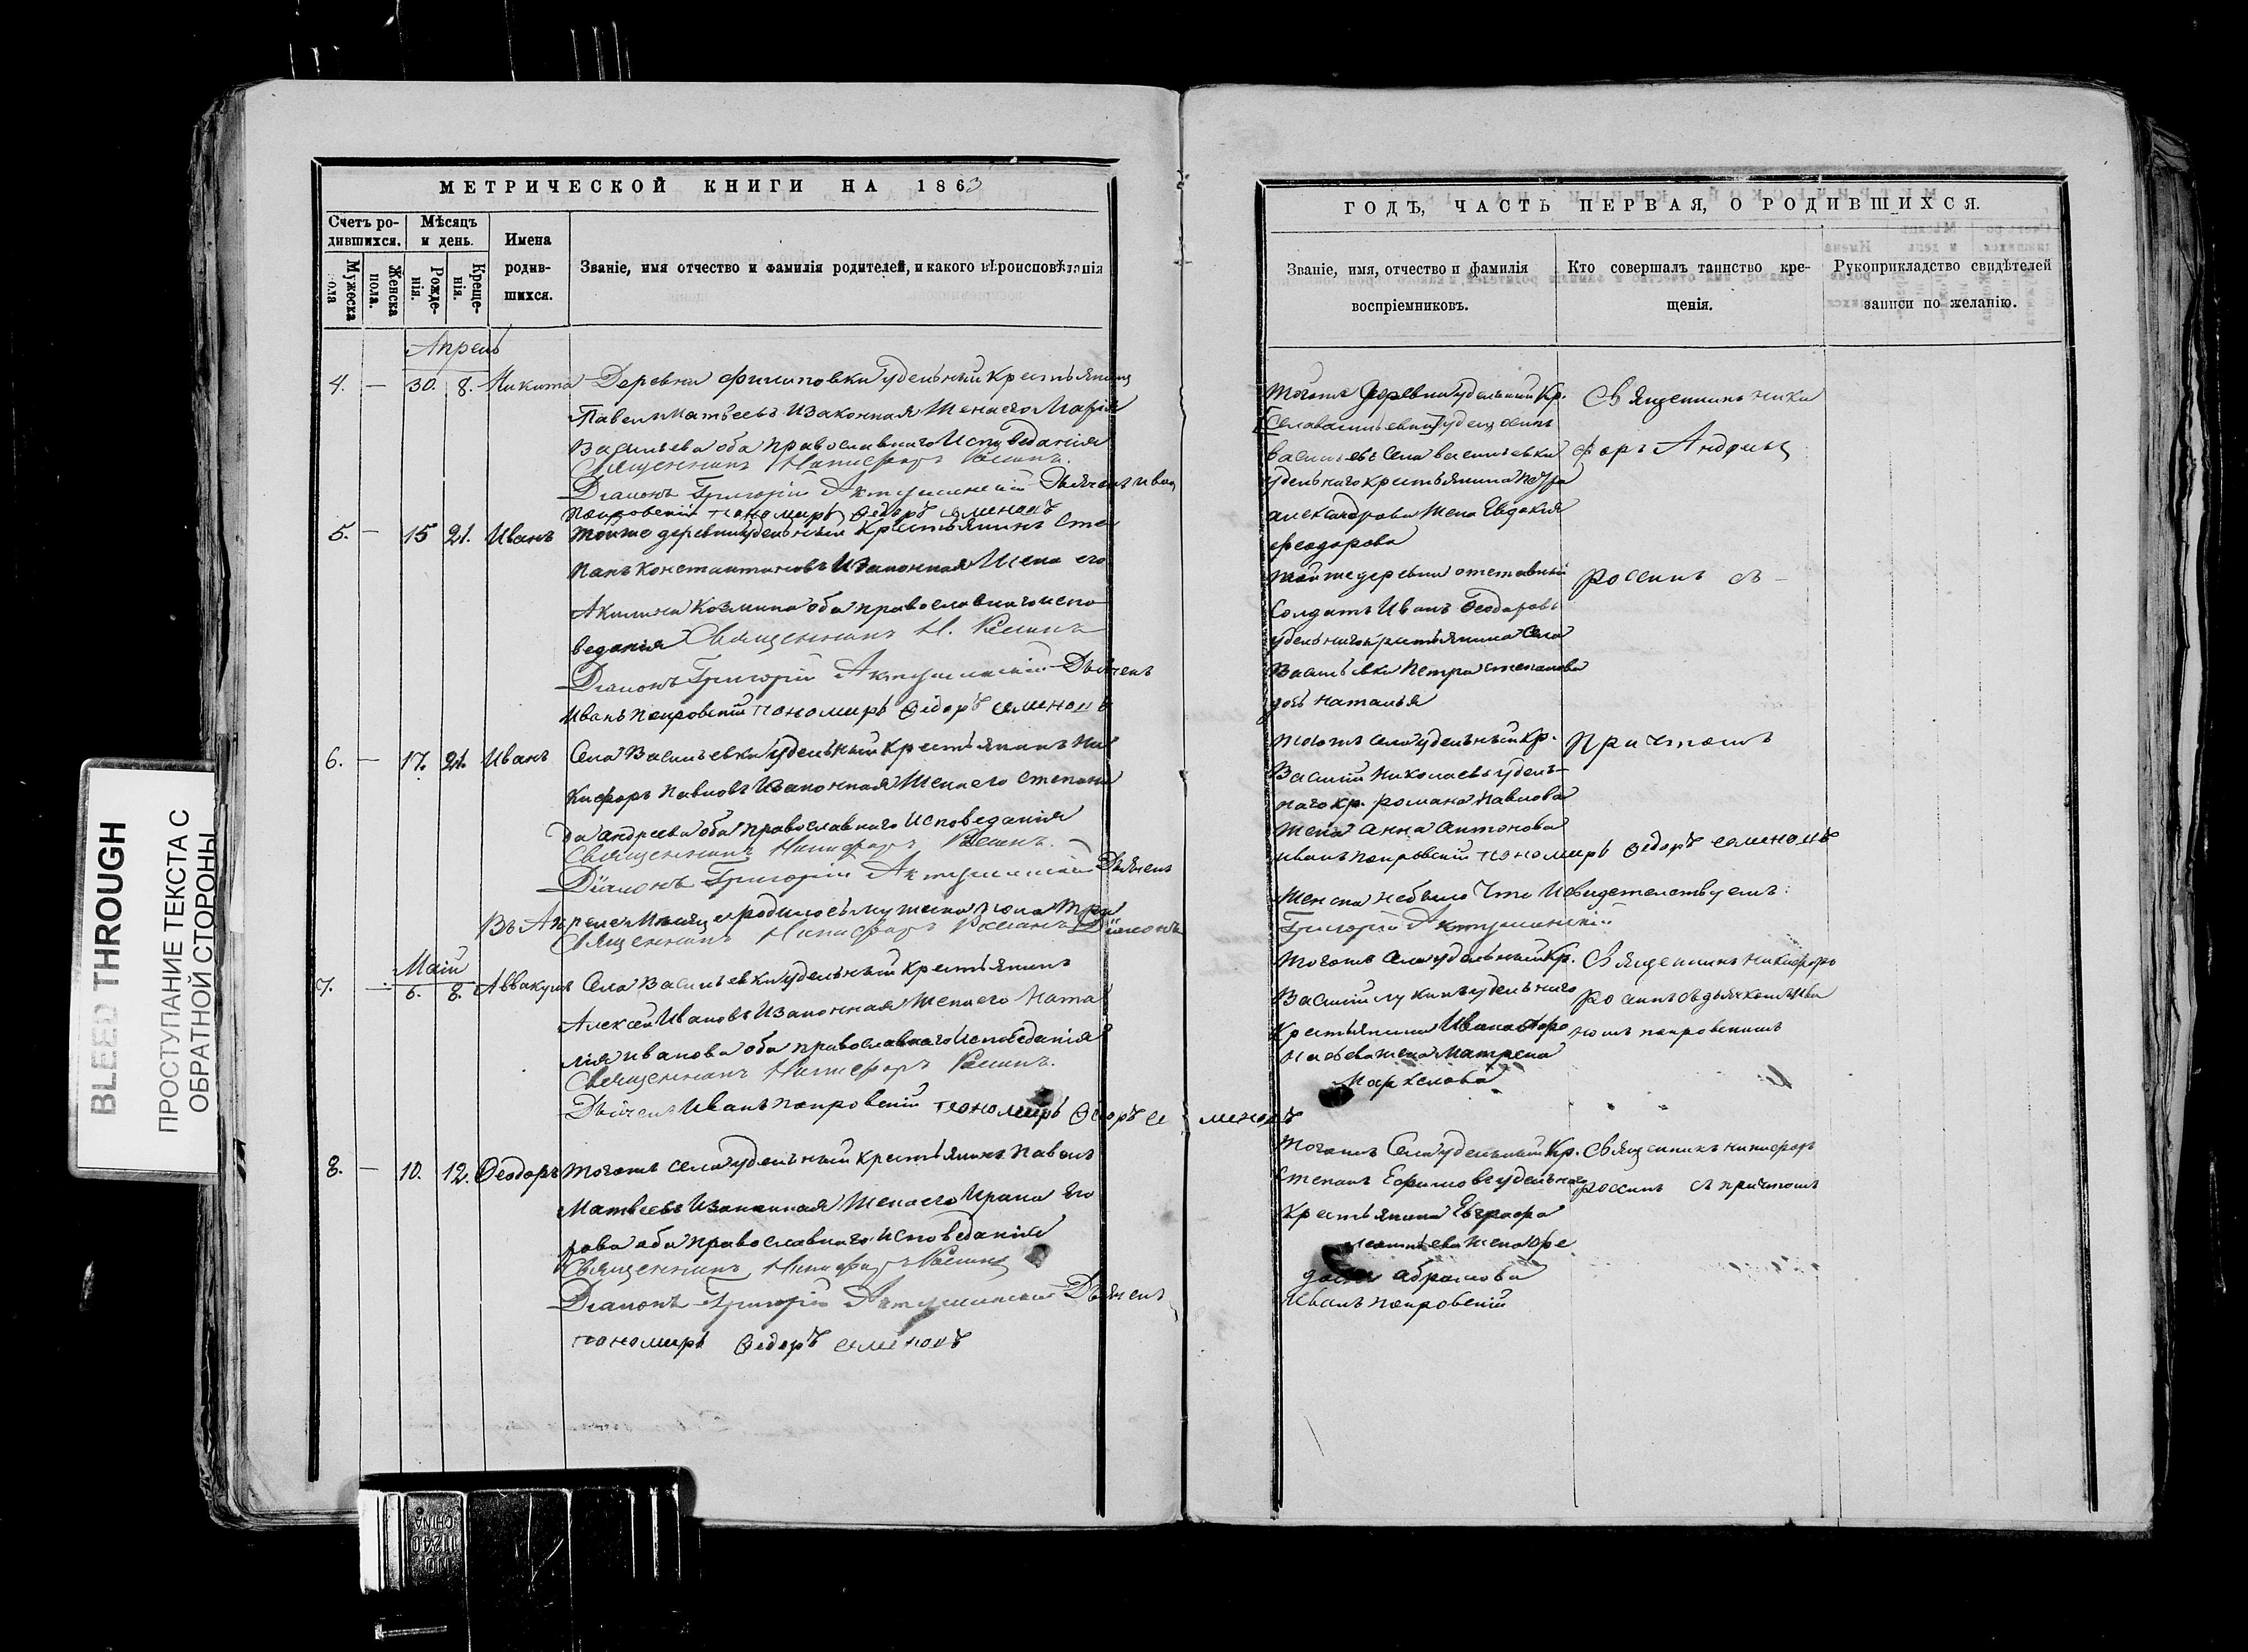 МЕТРИЧЕСКОЙ КНИГИ НА 1863
Счетъ ро-
дившихся.
Мѣсяцъ
и день.
Имена
родив-
шихся.
Мужеска
пола
Женска
пола.
Рожде-
нія.
Креще-
нія.
Званіе, имя отчество и фамилія родителей, и какого вѣроисповѣданія
Апрель
4. — 30. 8. Никита Деревни Филиповки удельный Крестьянинъ
Павелъ Матвеевъ и законная жена его Марія
Васильева оба православнаго Исповедания
Священникъ Никифоръ Росинъ.
Діаконъ Григорій Дьячекъ Иванъ
Покровскій пономарь Ѳедоръ Семеновъ
5. — 15 21. Иванъ тойже деревни удельный Крестьянинъ Сте
панъ Константиновъ и законная жена его
Акилина Козмина оба православнаго испо
веданія Священникъ Н. Росинъ
Діаконъ Григорій Дьячекъ
Иванъ Покровскій пономарь Ѳедоръ Семеновъ
6. — 17. 21. Иванъ Села Васильевки удельный Крестьянинъ Ни
кифоръ Павловъ и законная жена его Степани
да Андреева оба православнаго исповеданія
Священникъ Никифоръ Росинъ.
Діаконъ Григорій Дьячекъ
Въ Апреле месяце родилось мужеска пола три
Священникъ Никифоръ Росинъ Діаконъ
Маій
7. — 6. 8. Аввакумъ Села Васильевки удельный крестьянинъ
Алексей Ивановъ и законная жена его Ната
лія Иванова оба православнаго исповеданія
Священникъ Никифоръ Росинъ.
Дьячекъ Иванъ Покровскій пономарь Ѳедоръ Семеновъ
8. — 10. 12. Ѳеодоръ тогожъ села удельный крестьянинъ Павелъ
Матвеевъ и законная жена его Ирина Его
рова оба православнаго исповеданія
Священникъ Никифоръ Росинъ
Діаконъ Григорій Дьячекъ
пономарь Ѳедоръ Семеновъ
ГОДЪ, ЧАСТЬ ПЕРВАЯ, О РОДИВШИХСЯ.
Званіе, имя, отчество и фамилія
воспріемниковъ.
Кто совершалъ таинство кре-
щенія.
Рукоприкладство свидѣтелей
записи по желанію.
удельный Кр.
Васильевъ села Васильевки
удельнаго крестьянина Петра
Александрова жена Евдокия
Феодорова
Священникъ Ники
форъ
тойже деревни отставный
Солдатъ Иванъ Феодоровъ
удельнаго крестьянина села
Васильевки Петра Степанова
дочь Наталья
Россинъ съ —
тогожъ села удельный кр.
Василій Николаевъ удель-
наго кр. Романа Павлова
жена Анна Антонова
Причтомъ
Иванъ Покровскій пономарь Ѳедоръ Семеновъ
Женска небыло Что и свидетельствуемъ:
Григорій
тогожъ села удельный Кр.
Василій Лукинъ удельнаго
Крестьянина Ивана
жена Матрена
Маркелова
Священникъ Никифоръ
Росинъ съ дьячкомъ Ива
номъ Покровскимъ
тогожъ села удельный Кр.
Степанъ Ефимовъ удельнаго
Крестьянина Евграфа
жена Фе
Абрамова
Священникъ Никифоръ
Россинъ съ причтомъ
Иванъ Покровскій
BLEED THROUGH
ПРОСТУПАНИЕ ТЕКСТА С
ОБРАТНОЙ СТОРОНЫ